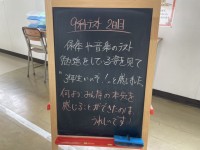 外部テスト 2日目
保体や音楽のテスト
勉強をしている姿を見て
"3年生いいな!"と感じました
何よりみんなの本気を
感じることができたのが
うれしいです